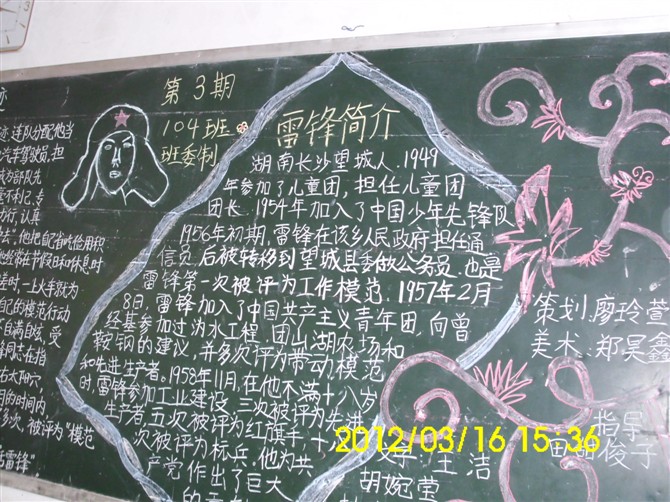 第3期
104班
班委制
雷锋简介
湖南长沙望城人. 1949
年参加了儿童团，担任儿童团
团长. 1954年加入了中国少年先锋队
1956年初期，雷锋在该乡人民政府担任通
信员. 后被转移到望城县委做公务员. 也是
雷锋第一次被评为工作模范. 1957年2月
8日，雷锋加入了中国共产主义青年团，向曾
经基参加过沩水工程，团山湖农场和
鞍钢的建议，并多次评为带动模范
和先进生产者。1958年11月，在他不满十八岁
时雷锋参加工业建设，三次被评为先进
生产者五次被评为红旗手，十
次被评为标兵，他为共
产党作出了巨大
迹
连队分配他当
汽车驾驶员，担
成为部队先
不利己，专
方行，认真
他把自己省吃俭用积
他经常在节假日和休息时
差时一上火车就为
自己的模范行动
不自满自炫，受
右太阳穴
月的时间内
多次，被评为"模范
雷锋"
策划：廖玲萱
美术：郑昊鑫
指导
俊子
王洁
胡婉莹
2012/03/16 15:36